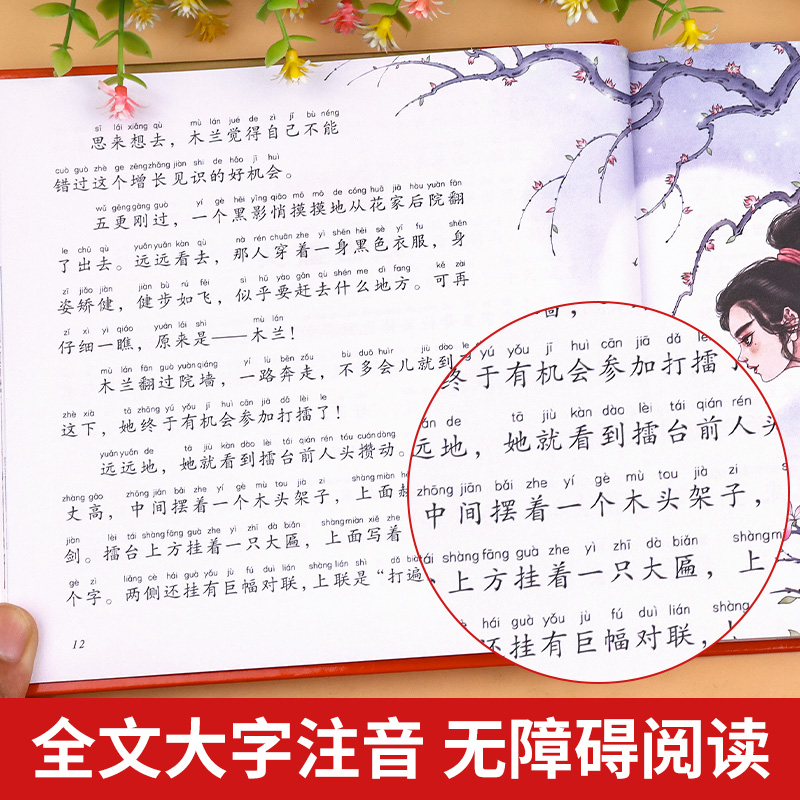 sī lái xiǎng qù mù lán jué de zì jǐ bù néng
思来想去，木兰觉得自己不能
cuò guò zhè ge zēng zhǎng jiàn shi de hǎo jī huì
错过这个增长见识的好机会。
wǔ gēng gāng guò yí gè hēi yǐng qiāo mō mō de cóng huā jiā hòu yuàn fān
五更刚过，一个黑影悄摸摸地从花家后院翻
le chū qù yuǎn yuǎn kàn qù nà rén chuān zhe yì shēn hēi sè yī fu shēn
了出去。远远看去，那人穿着一身黑色衣服，身
zī jiǎo jiàn jiàn bù rú fēi sì hū yào gǎn qù shén me dì fang kě zài
姿矫健，健步如飞，似乎要赶去什么地方。可再
zǐ xì yì qiáo yuán lái shì mù lán
仔细一瞧，原来是——木兰！
mù lán fān guò yuàn qiáng yí lù bēn zǒu bù duō huìr jiù dào le
木兰翻过院墙，一路奔走，不多会儿就到了
zhè xià tā zhōng yú yǒu jī huì cān jiā dǎ lèi le
这下，她终于有机会参加打擂了！
yuǎn yuǎn de tā jiù kàn dào lèi tái qián rén tóu cuán dòng
远远地，她就看到擂台前人头攒动。
zhàng gāo zhōng jiān bǎi zhe yí gè mù tou jià zi shàng miàn hè
丈高，中间摆着一个木头架子，上面赫
jiàn lèi tái shàng fāng guà zhe yì zhī dà biǎn shàng miàn xiě zhe
剑。擂台上方挂着一只大匾，上面写着
gè zì liǎng cè hái guà yǒu jù fú duì lián shàng lián shì dǎ biàn
个字。两侧还挂有巨幅对联，上联是“打遍
12
yú yǒu jī huì cān jiā dǎ le
终于有机会参加打擂了
de tā jiù kàn dào lèi tái qián rén
远地，她就看到擂台前人头
zhōng jiān bǎi zhe yí gè mù tou jià zi
中间摆着一个木头架子，
tái shàng fāng guà zhe yì zhī dà biǎn shàng
上方挂着一只大匾，上
hái guà yǒu jù fú duì lián shàng
还挂有巨幅对联，上
全文大字注音 无障碍阅读